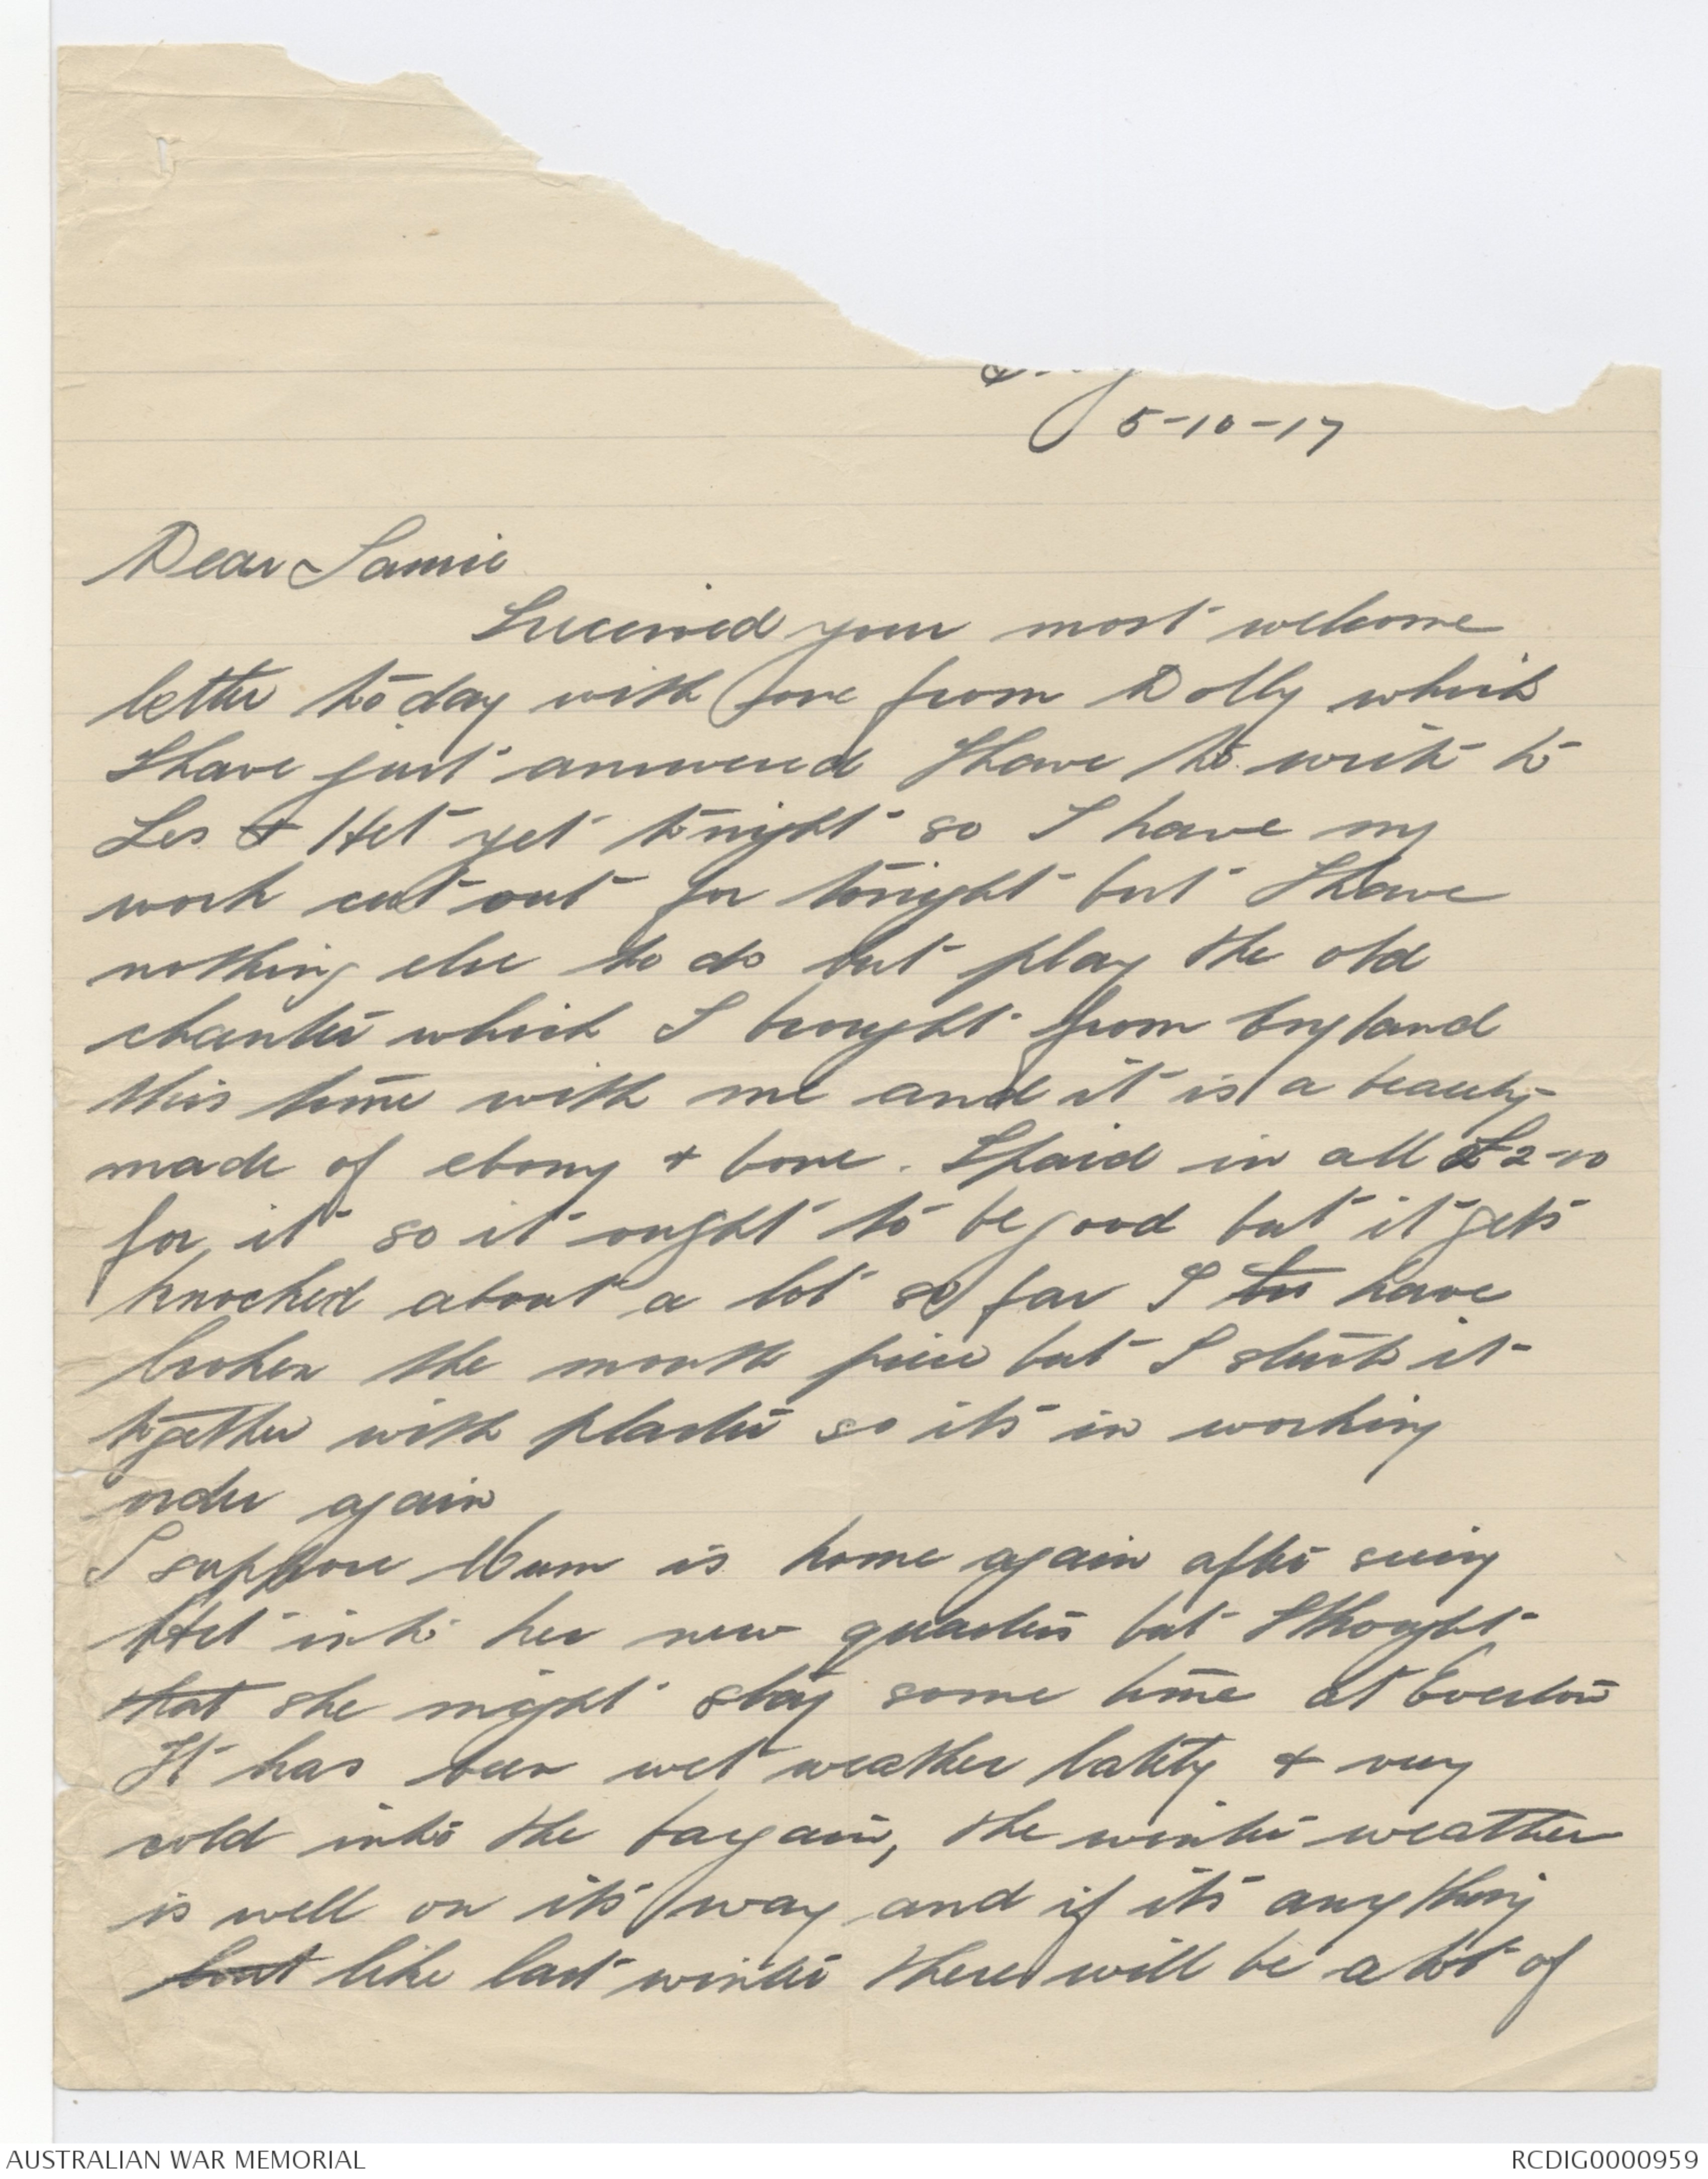 5-10-17
Dear Jamie
I received your most welcome
letter today with one from Dolly which
I have just answered I have to write to
Les & Het yet tonight so I have my
work cut out for tonight but I have
nothing else to do but play the old
chanter which I brought from England
this time with me and it is a beauty
made of ebony & bone. I paid in all £2-10
for it so it ought to be good but it gets
knocked about a lot so far I have
broken the mouth piece but I stuck it
together with plaster so its in working
order again
I suppose Mum is home again after seeing
Het into her new quarters but I thought
that she might stay some time at
It has been wet weather lately & very
cold into the bargain, the winter weather
is well on its way and if its anything
but like last winter there will be a lot of
AUSTRALIAN WAR MEMORIAL
RCDIG0000959